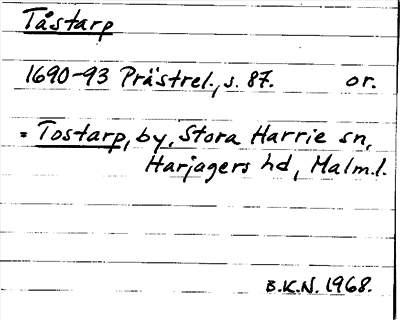 Tåstarp
1690-93 Prästrel., s. 87. or.
= Tostarp, by, Stora Harrie sn,
Harjagers hd, Malm.l.
B.K.N. 1968.